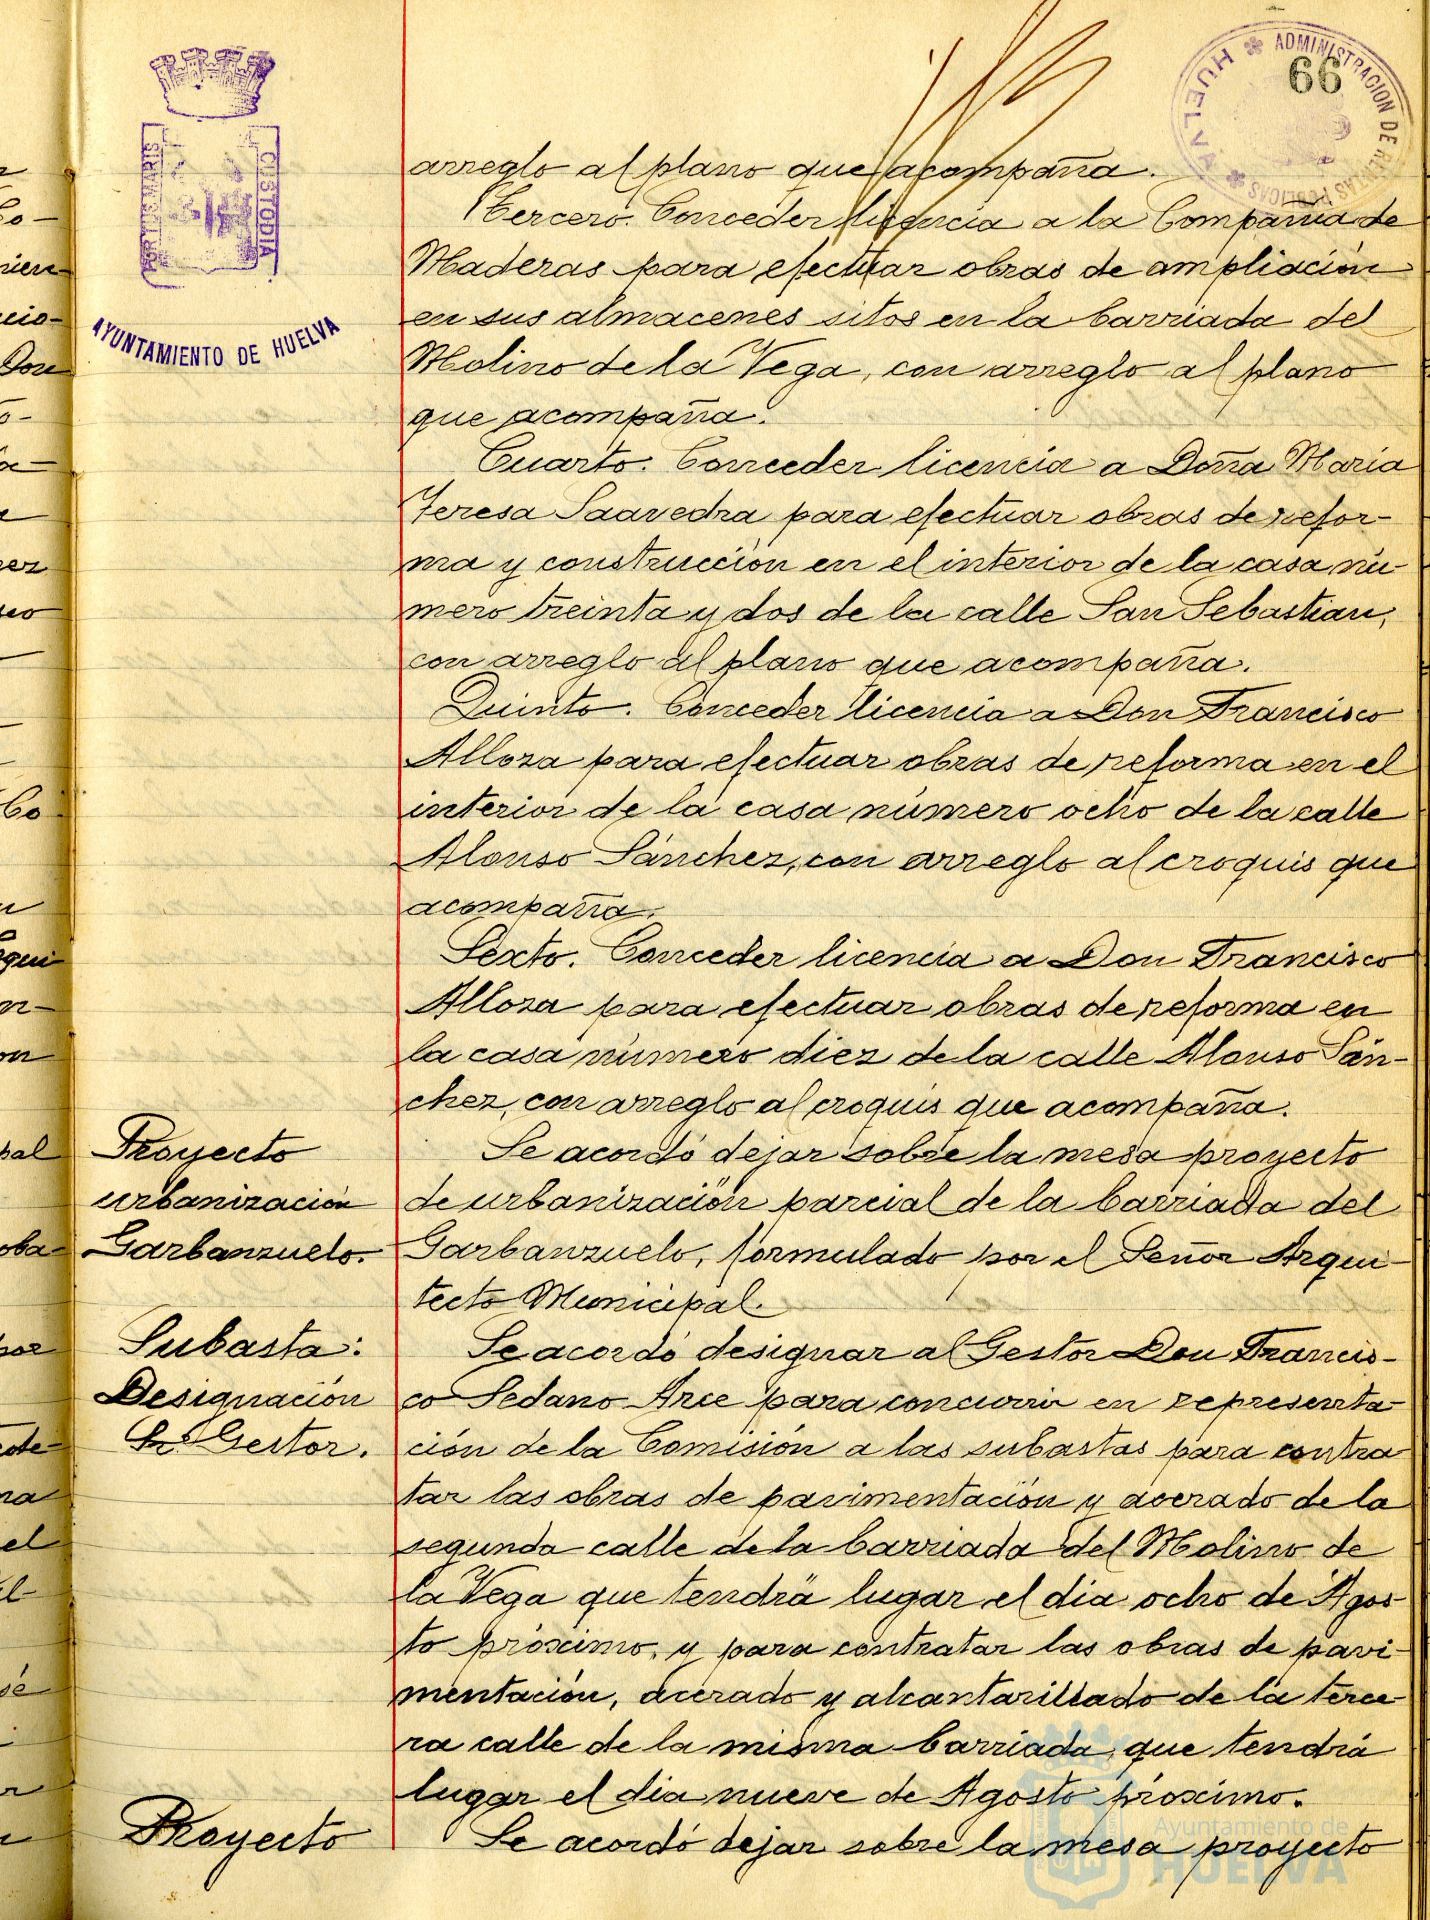 PORTUS MARIS
CUSTODIA
AYUNTAMIENTO DE HUELVA
ADMINISTRACION DE RENTAS PUBLICAS
HUELVA
66
arreglo al plano que acompaña.
Tercero. Conceder licencia a la Compañia de
Maderas para efectuar obras de ampliación
en sus almacenes sitos en la barriada del
Molino de la Vega, con arreglo al plano
que acompaña.
Cuarto. Conceder licencia a Doña Maria
Teresa Saavedra para efectuar obras de refor-
ma y construcción en el interior de la casa nú-
mero treinta y dos de la calle San Sebastian,
con arreglo al plano que acompaña.
Quinto. Conceder licencia a Don Francisco
Alloza para efectuar obras de reforma en el
interior de la casa número ocho de la calle
Alonso Sánchez, con arreglo al croquis que
acompaña.
Sexto. Conceder licencia a Don Francisco
Alloza para efectuar obras de reforma en
la casa número diez de la calle Alonso Sán-
chez, con arreglo al croquis que acompaña.
Proyecto
urbanización
Garbanzuelo.
Se acordó dejar sobre la mesa proyecto
de urbanización parcial de la barriada del
Garbanzuelo, formulado por el Señor Arqui-
tecto Municipal.
Subasta:
Designación
Sr. Gestor.
Se acordó designar al Gestor Don Francis-
co Sedano Arce para concurrir en representa-
ción de la Comisión a las subastas para contra-
tar las obras de pavimentación y acerado de la
segunda calle de la barriada del Molino de
la Vega que tendrá lugar el dia ocho de Agos-
to próximo, y para contratar las obras de pavi-
mentación, acerado y alcantarillado de la terce-
ra calle de la misma barriada, que tendrá
lugar el dia nueve de Agosto próximo.
Proyecto
Se acordó dejar sobre la mesa proyecto
Ayuntamiento de
HUELVA